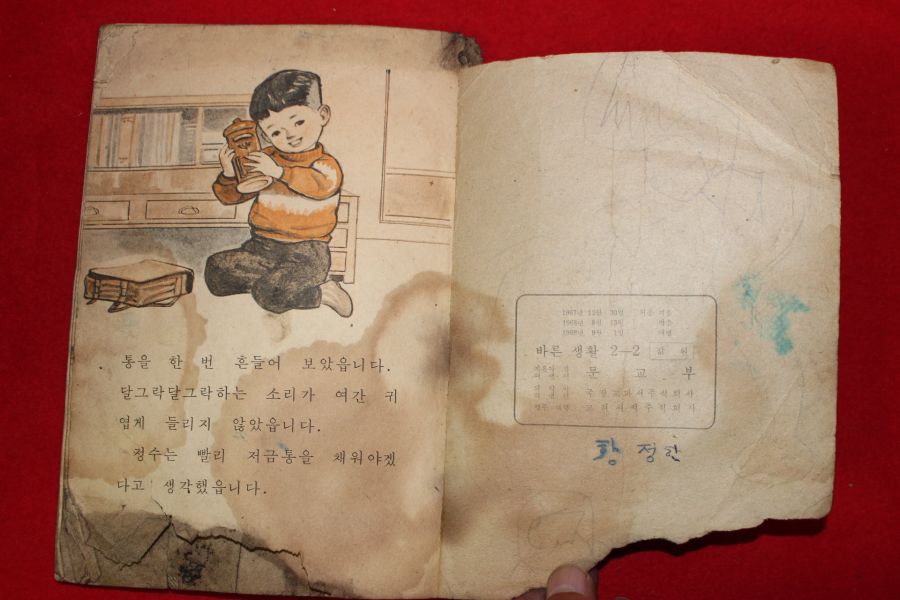 통을 한 번 흔들어 보았읍니다.
달그락달그락하는 소리가 여간 귀
엽게 들리지 않았읍니다.
정수는 빨리 저금통을 채워야겠
다고 생각했읍니다.
1967년 12월 30일
1968년 8월
1968년 9월 1일
바른 생활 2—2
문 교 부
국정교과서주식회사
고려서적주식회사
황 정한